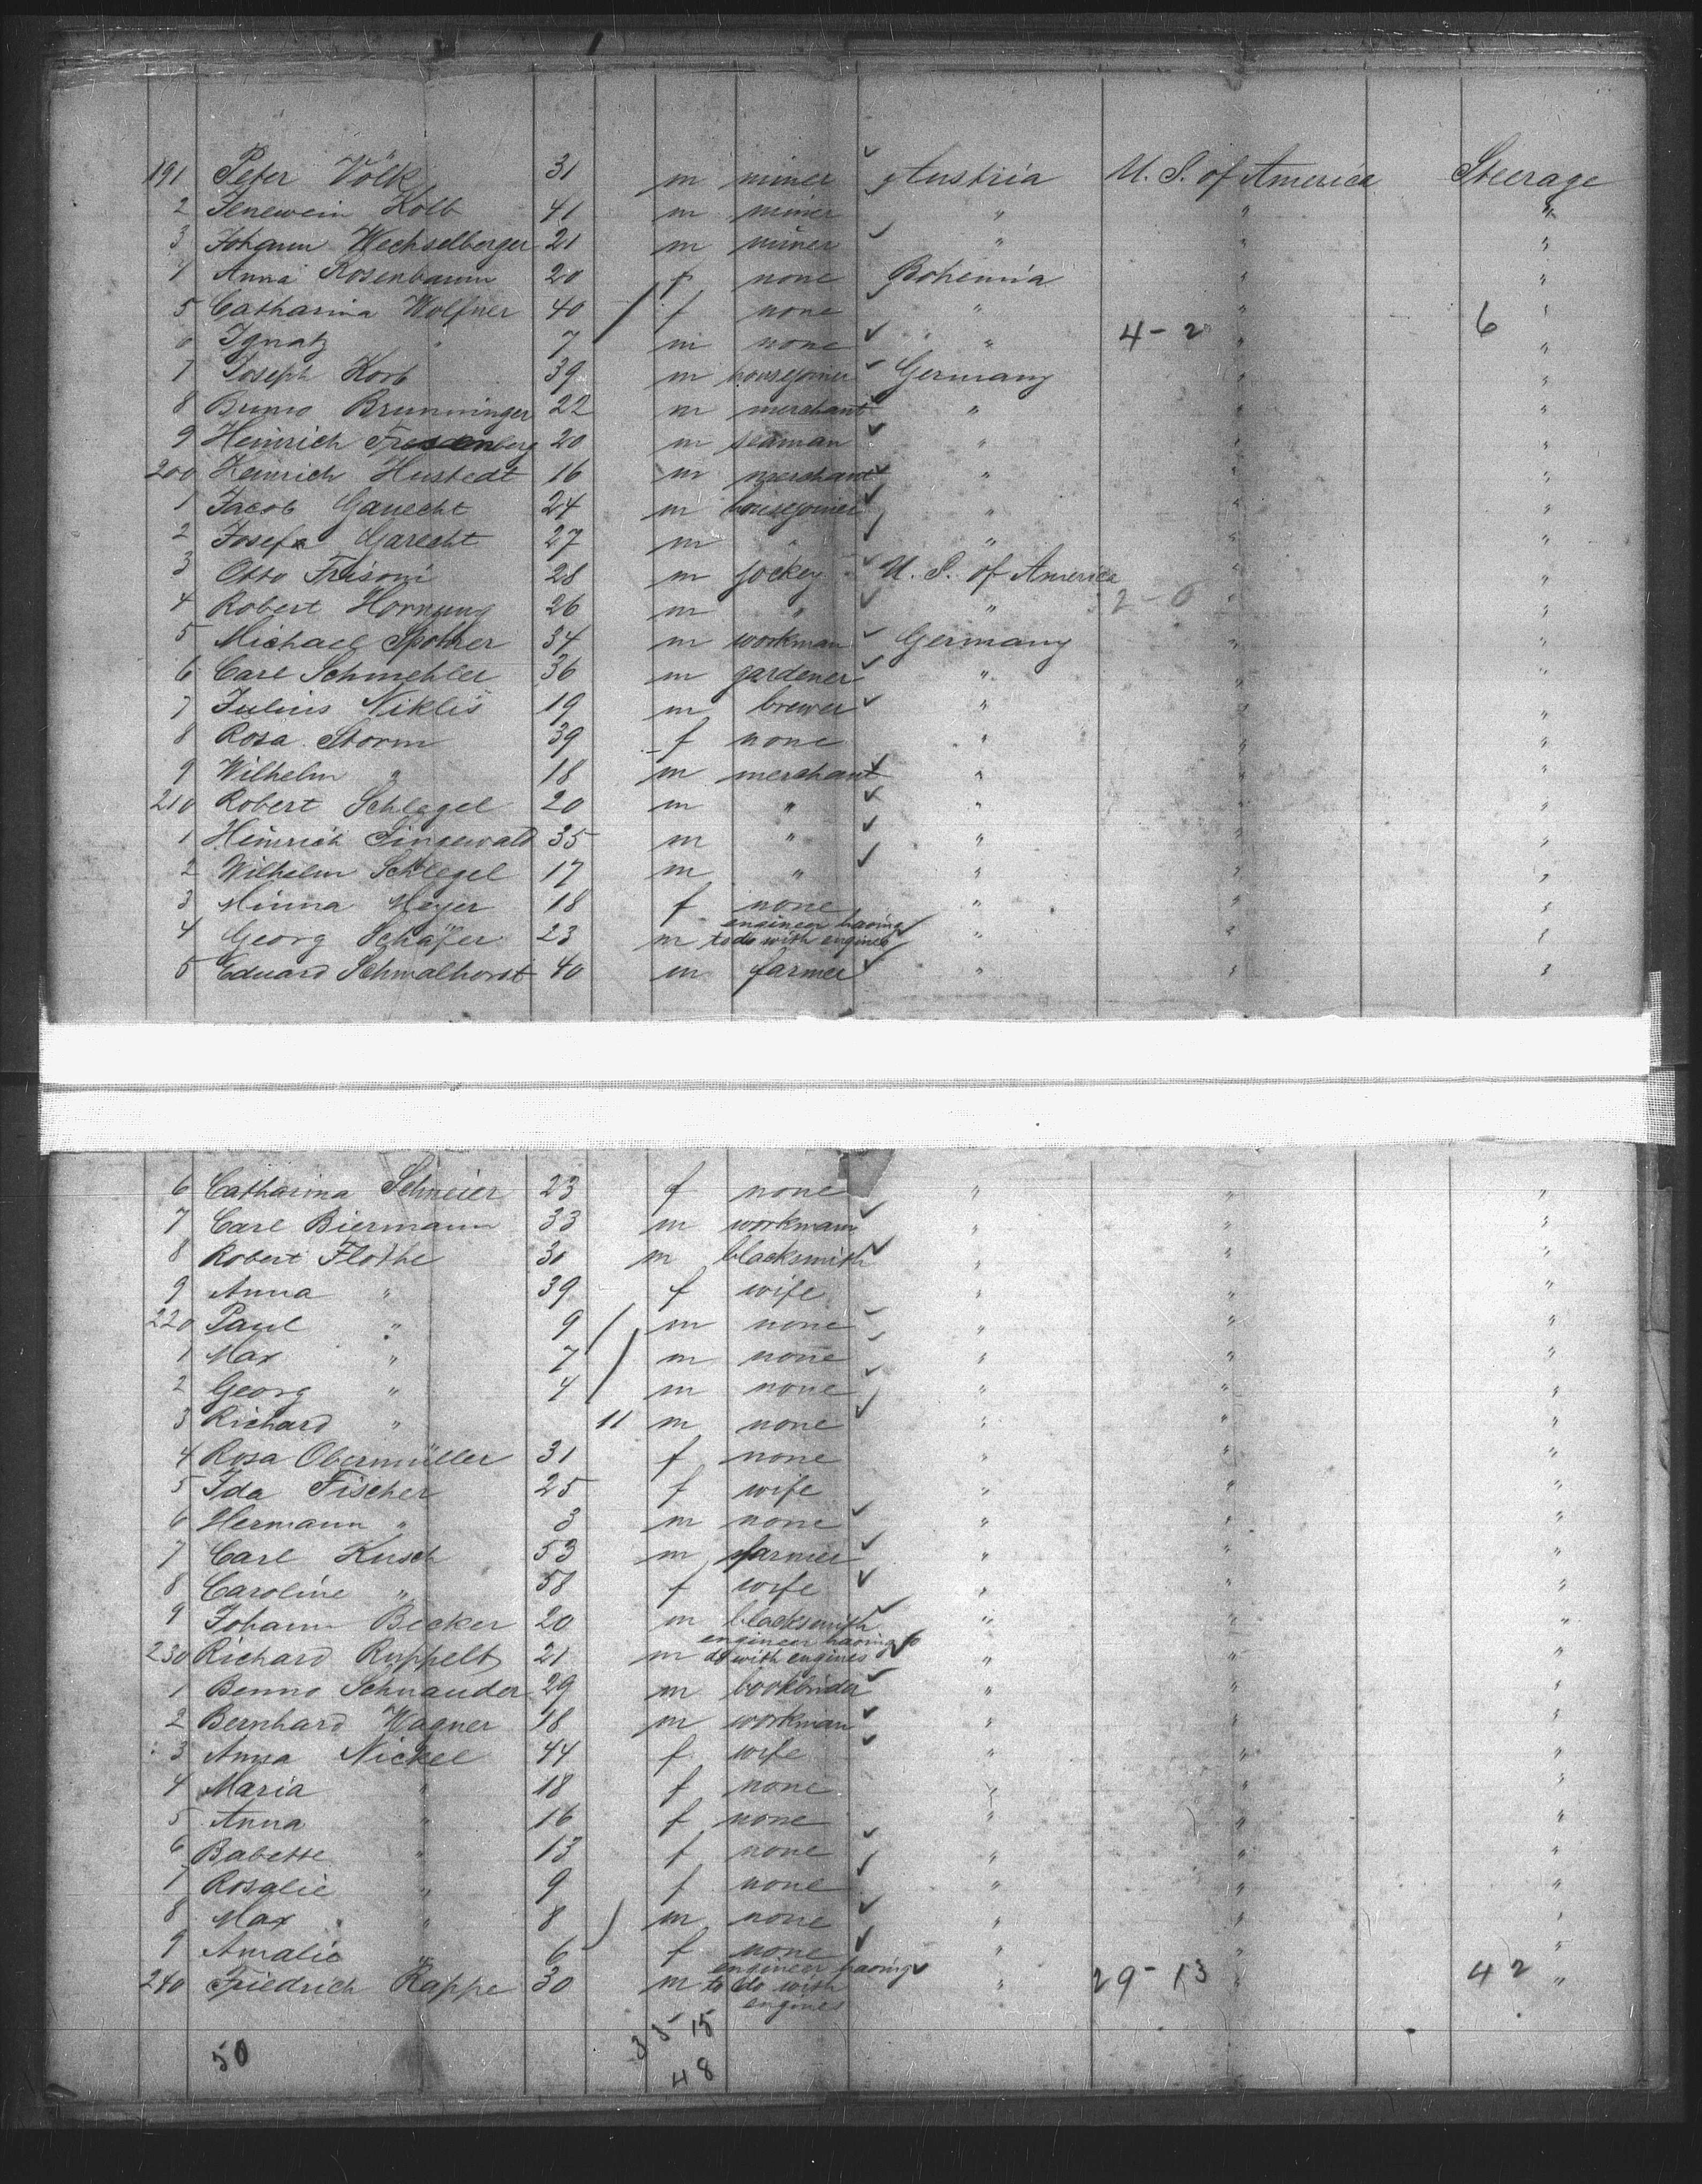 191 Peter Völk 31 m miner Austria U. S. of America Steerage
2 Jenewein Kolb 41 m miner " " "
3 Johann Wechselberger 21 m miner " " "
4 Anna Rosenbaum 20 f none Bohemia " "
5 Catharina Wolfner 40 f none " " "
6 Ignatz " 7 m none " 4-2 " 6 "
7 Joseph Korb 39 m housejoiner Germany " "
8 Bruno Brunninger 22 m merchant " " "
9 Heinrich 20 m seaman " " "
200 Heinrich Hustedt 16 m merchant " " "
1 Jacob Garecht 24 m housejoiner " " "
2 Josefa Garecht 27 m " " " "
3 Otto Frisoni 28 m jockey U. S. of America " "
4 Robert Hornung 26 m " " 2-0 " "
5 Michael Spohrer 34 m workman Germany " "
6 Carl Schmehler 36 m gardener " " "
7 Julius Niklis 19 m brewer " " "
8 Rosa Storm 39 f none " " "
9 Wilhelm " 18 m merchant " " "
210 Robert Schlegel 20 m " " " "
1 Heinrich Singewald 35 m " " " "
2 Wilhelm Schlegel 17 m " " " "
3 Minna Meyer 18 f none " " "
4 Georg Schäfer 23 m engineer having to do with engines " " "
5 Eduard Schwalhorst 40 m farmer " " "
6 Catharina Schneier 23 f none " " "
7 Carl Biermann 33 m workman " " "
8 Robert Flothe 30 m blacksmith " " "
9 Anna " 39 f wife " " "
220 Paul " 9 m none " " "
1 Max " 7 m none " " "
2 Georg " 4 m none " " "
3 Richard " 11 m none " " "
4 Rosa Obermüller 31 f none " " "
5 Ida Fischer 25 f wife " " "
6 Hermann " 3 m none " " "
7 Carl Kusch 53 m farmer " " "
8 Caroline " 58 f wife " " "
9 Johann Becker 20 m blacksmith " " "
230 Richard Ruppelt 21 m engineer having to do with engines " " "
1 Benno Schnauder 29 m bookbinder " " "
2 Bernhard Wagner 18 m workman " " "
3 Anna Nickel 44 f wife " " "
4 Maria " 18 f none " " "
5 Anna " 16 f none " " "
6 Babette " 13 f none " " "
7 Rosalie " 9 f none " " "
8 Max " 8 m none " " "
9 Amalie " 6 f none " " "
240 Friedrich Rappe 30 m engineer having to do with engines " 29-13 " 42 "
50 35-15
48